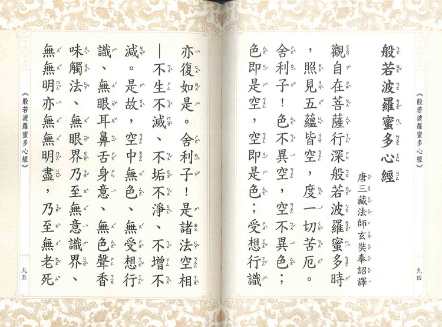 般若波羅蜜多心經
唐三藏法師玄奘奉詔譯
觀自在菩薩行深般若波羅蜜多時
，照見五蘊皆空，度一切苦厄。
舍利子！色不異空，空不異色；
色即是空，空即是色；受想行識
《般若波羅蜜多心經》
九四
亦復如是。舍利子！是諸法空相
—不生不滅、不垢不淨、不增不
減。是故，空中無色、無受想行
識、無眼耳鼻舌身意、無色聲香
味觸法、無眼界乃至無意識界、
無無明亦無無明盡，乃至無老死
《般若波羅蜜多心經》
九五